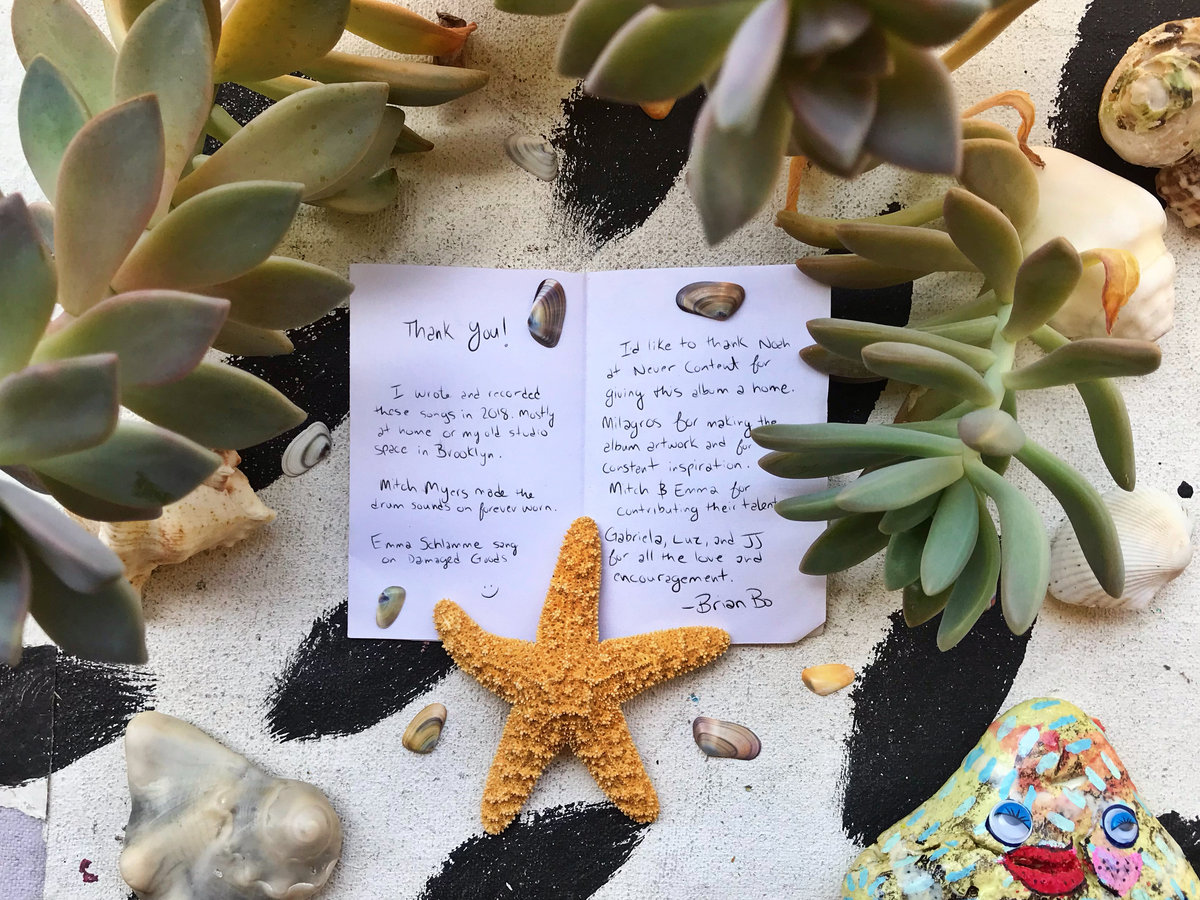 Thank You!
I wrote and recorded
these songs in 2018. Mostly
at home or my old studio
space in Brooklyn.
Mitch Myers made the
drum sounds on forever worn.
Emma Schlamme sang
on Damaged Goods
I'd like to thank Noah
at Never Content for
giving this album a home.
Milagros for making the
album artwork and for
constant inspiration.
Mitch & Emma for
contributing their talent
Gabriela, Luz, and JJ
for all the love and
encouragement.
-Brian Bo